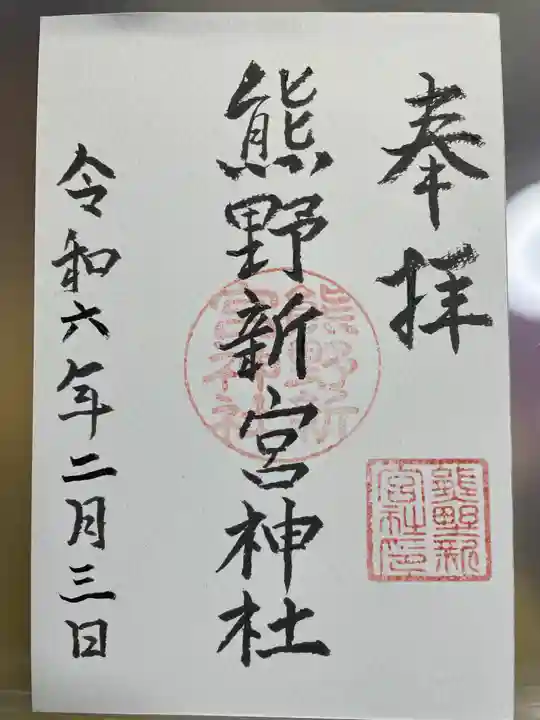 奉拝
熊野新宮神社
熊野新宮神社
熊野新宮社印
令和六年二月三日